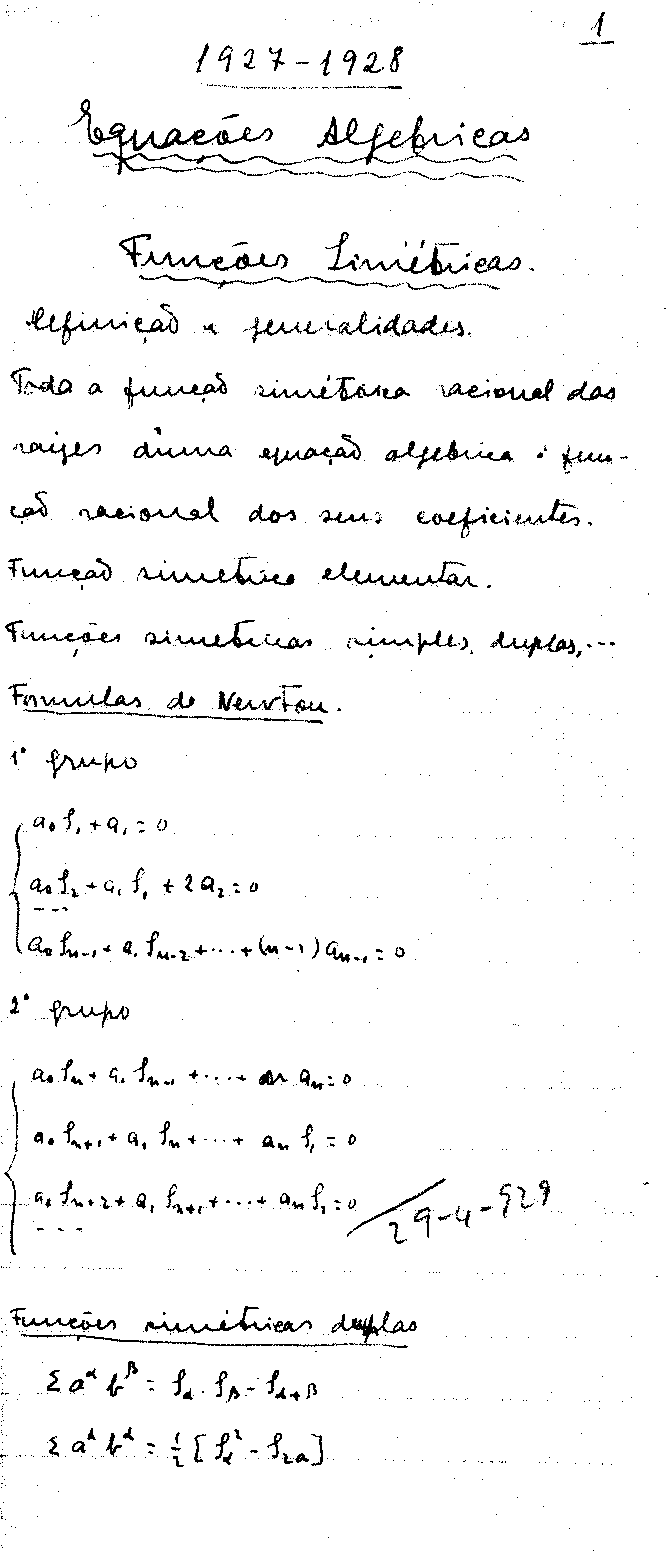 1
1927-1928
Equações Algebricas
Funções Simétricas.
Definição e generalidades.
Toda a função simétrica racional das
raizes duma equação algebrica é fun-
ção racional dos seus coeficientes.
Função simetrica elementar.
Funções simetricas simples, duplas, ...
Formulas de Newton.
1º grupo
a₀ S₁ + a₁ = 0
a₀ S₂ + a₁ S₁ + 2 a₂ = 0
---
a₀ Sₙ₋₁ + a₁ Sₙ₋₂ + ... + (n-1) aₙ₋₁ = 0
2º grupo
a₀ Sₙ + a₁ Sₙ₋₁ + ... + n aₙ = 0
a₀ Sₙ₊₁ + a₁ Sₙ + ... + aₙ S₁ = 0
a₀ Sₙ₊₂ + a₁ Sₙ₊₁ + ... + aₙ S₂ = 0
---
29-4-929
Funções simétricas duplas
Σ a^α b^β = S_α . S_β - S_α+β
Σ a^α b^α = ½ [S_α² - S_2α]